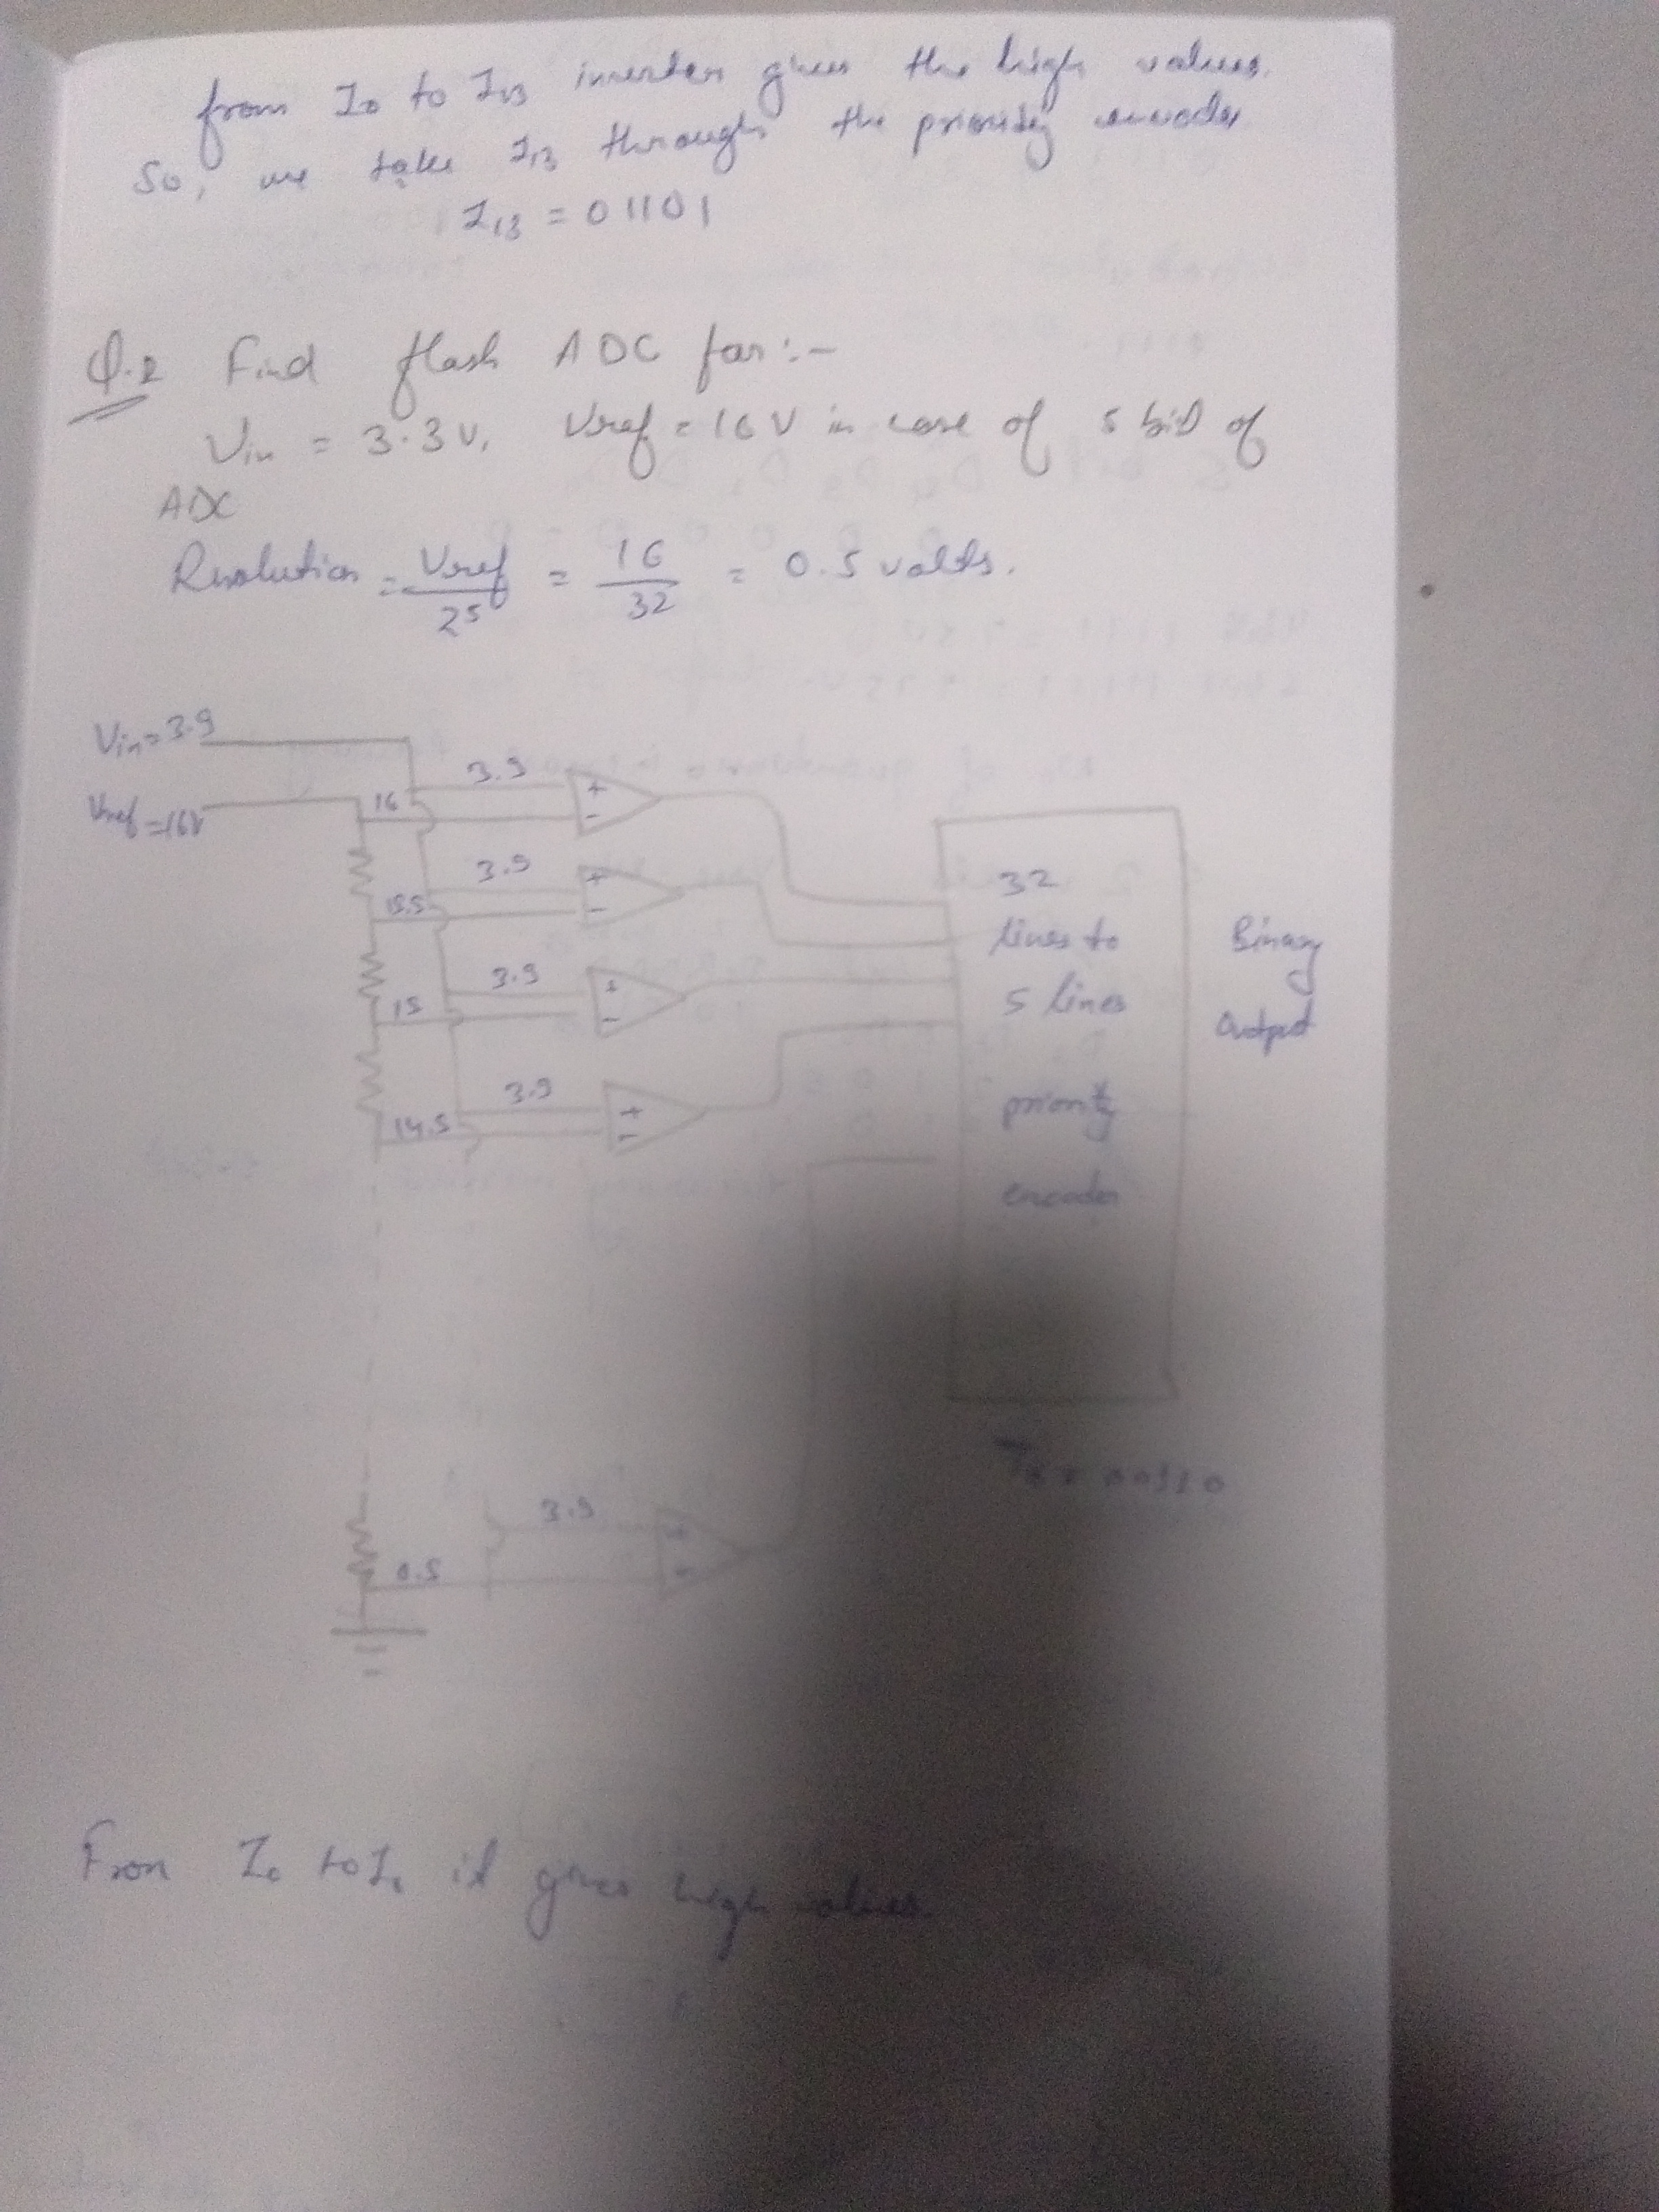 from I0 to I13 inverter gives the high values.
So, we take I13 through the priority encoder
I13 = 01101
Q.2 Find flash ADC for:-
Vin = 3.3V, Vref = 16V in case of 5 bit of
ADC
Resolution = Vref / 2^5 = 16 / 32 = 0.5 volts.
Vin = 3.9
Vref = 16V
16
3.9
+
-
15.5
3.9
+
-
15
3.9
+
-
14.5
3.9
+
-
32
lines to
5 lines
priority
encoder
Binary
Output
= 00110
3.9
+
-
0.5
From I0 to it gives high values.